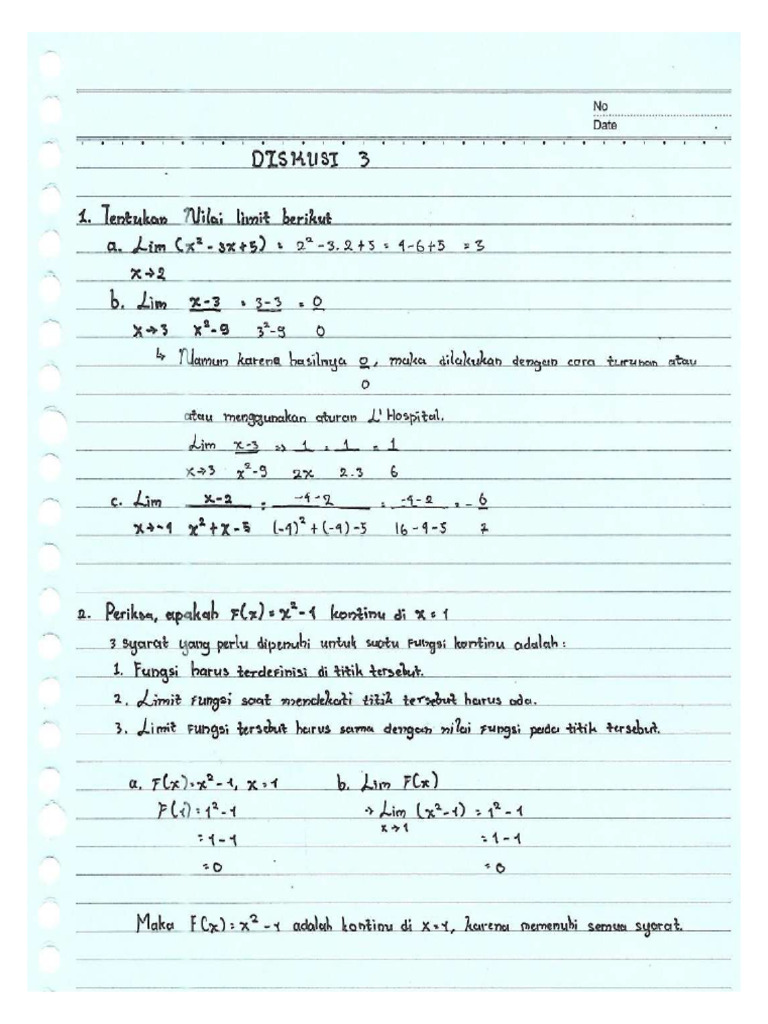 No
Date
DISKUSI 3
1. Tentukan Nilai limit berikut
a. Lim (x² - 3x + 5) = 2² - 3.2 + 5 = 4 - 6 + 5 = 3
x → 2
b. Lim x-3 = 3-3 = 0
x → 3 x²-9 3²-9 0
↳ Namun karena hasilnya 0, maka dilakukan dengan cara turunan atau
0
atau menggunakan aturan L'Hospital.
Lim x-3 => 1 = 1 = 1
x→3 x²-9 2x 2.3 6
c. Lim x-2 = -4-2 = -4-2 = - 6
x→-4 x²+x-5 (-4)²+(-4)-5 16-4-5 7
2. Periksa, apakah F(x) = x² - 1 kontinu di x = 1
3 syarat yang perlu dipenuhi untuk suatu fungsi kontinu adalah :
1. Fungsi harus terdefinisi di titik tersebut.
2. Limit fungsi saat mendekati titik tersebut harus ada.
3. Limit fungsi tersebut harus sama dengan nilai fungsi pada titik tersebut.
a. F(x) = x² - 1, x = 1 b. Lim F(x)
F(1) = 1² - 1 → Lim (x² - 1) = 1² - 1
x → 1
= 1 - 1 = 1 - 1
= 0 = 0
Maka F(x) = x² - 1 adalah kontinu di x = 1, karena memenuhi semua syarat.